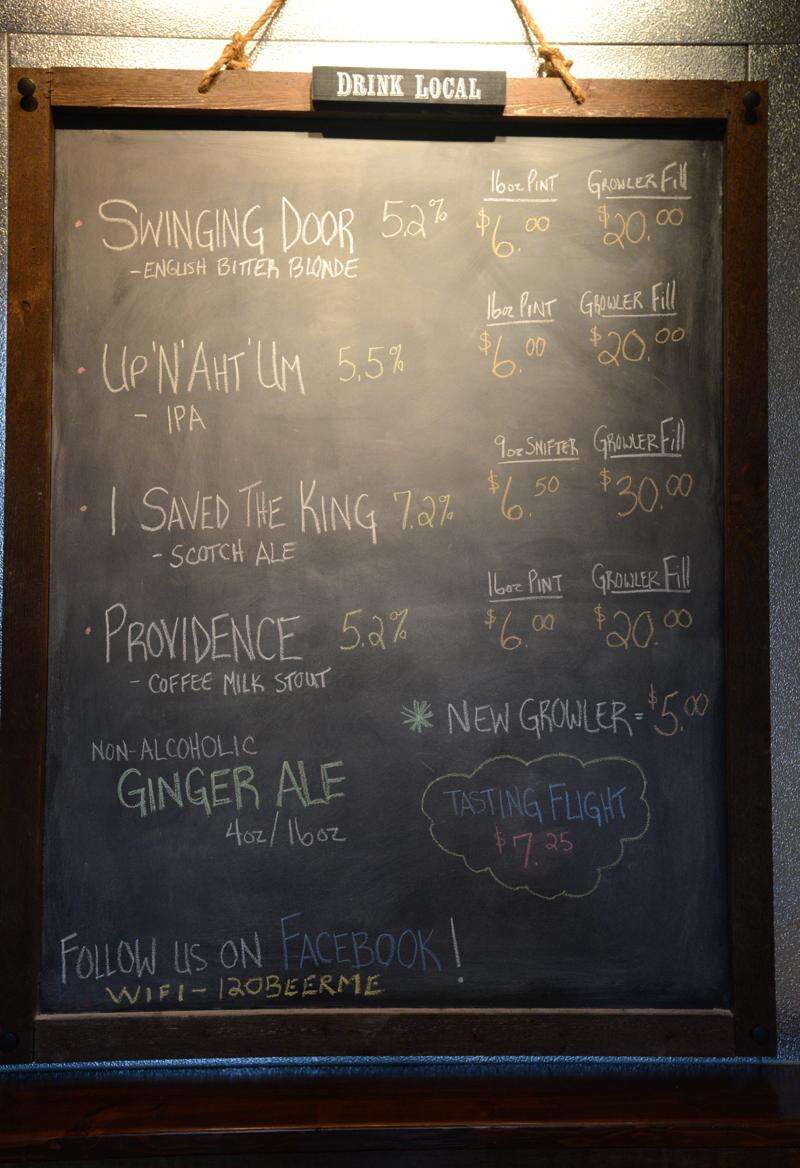 DRINK LOCAL
16oz PINT GROWLER Fill
SWINGING DOOR 5.2% $6.00 $20.00
-ENGLISH BITTER BLONDE
16oz PINT GROWLER Fill
UP'N'AHT'UM 5.5% $6.00 $20.00
- IPA
9oz SNIFTER GROWLER Fill
I SAVED THE KING 7.2% $6.50 $30.00
- SCOTCH ALE
16oz PINT GROWLER Fill
PROVIDENCE 5.2% $6.00 $20.00
- COFFEE MILK STOUT
* NEW GROWLER = $5.00
NON-ALCOHOLIC
GINGER ALE
4oz/16oz
TASTING FLIGHT
$7.25
FOLLOW US ON FACEBOOK!
WIFI - 120BEERME